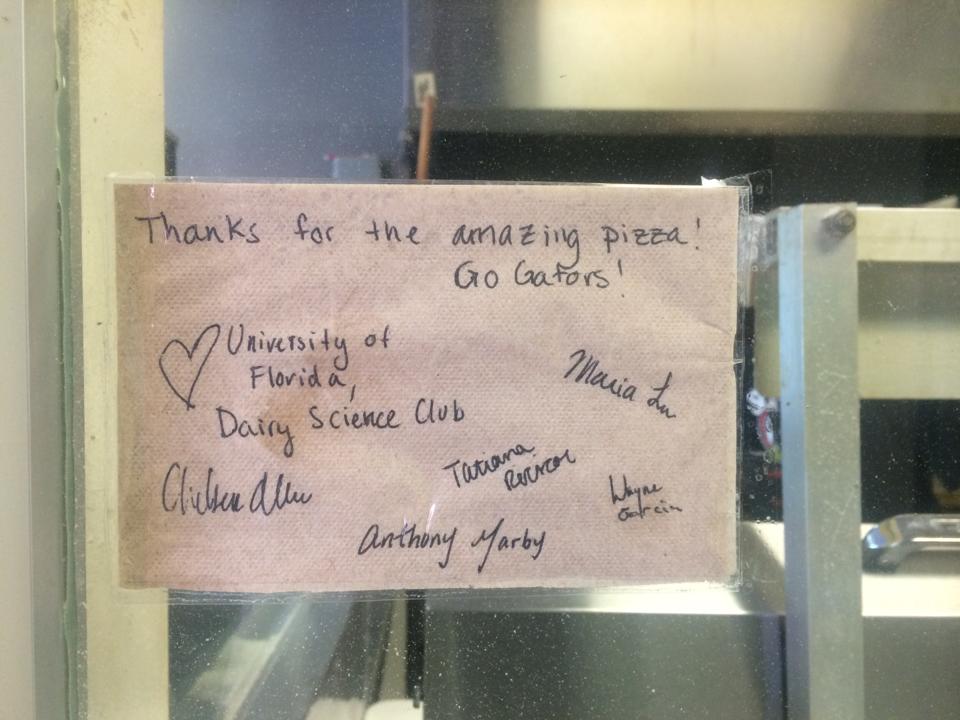 Thanks for the amaziing pizza!
Go Gators!
University of
Florida,
Dairy Science Club
Maria Lu
Tatiana
Wayne
Garcia
Anthony Marby